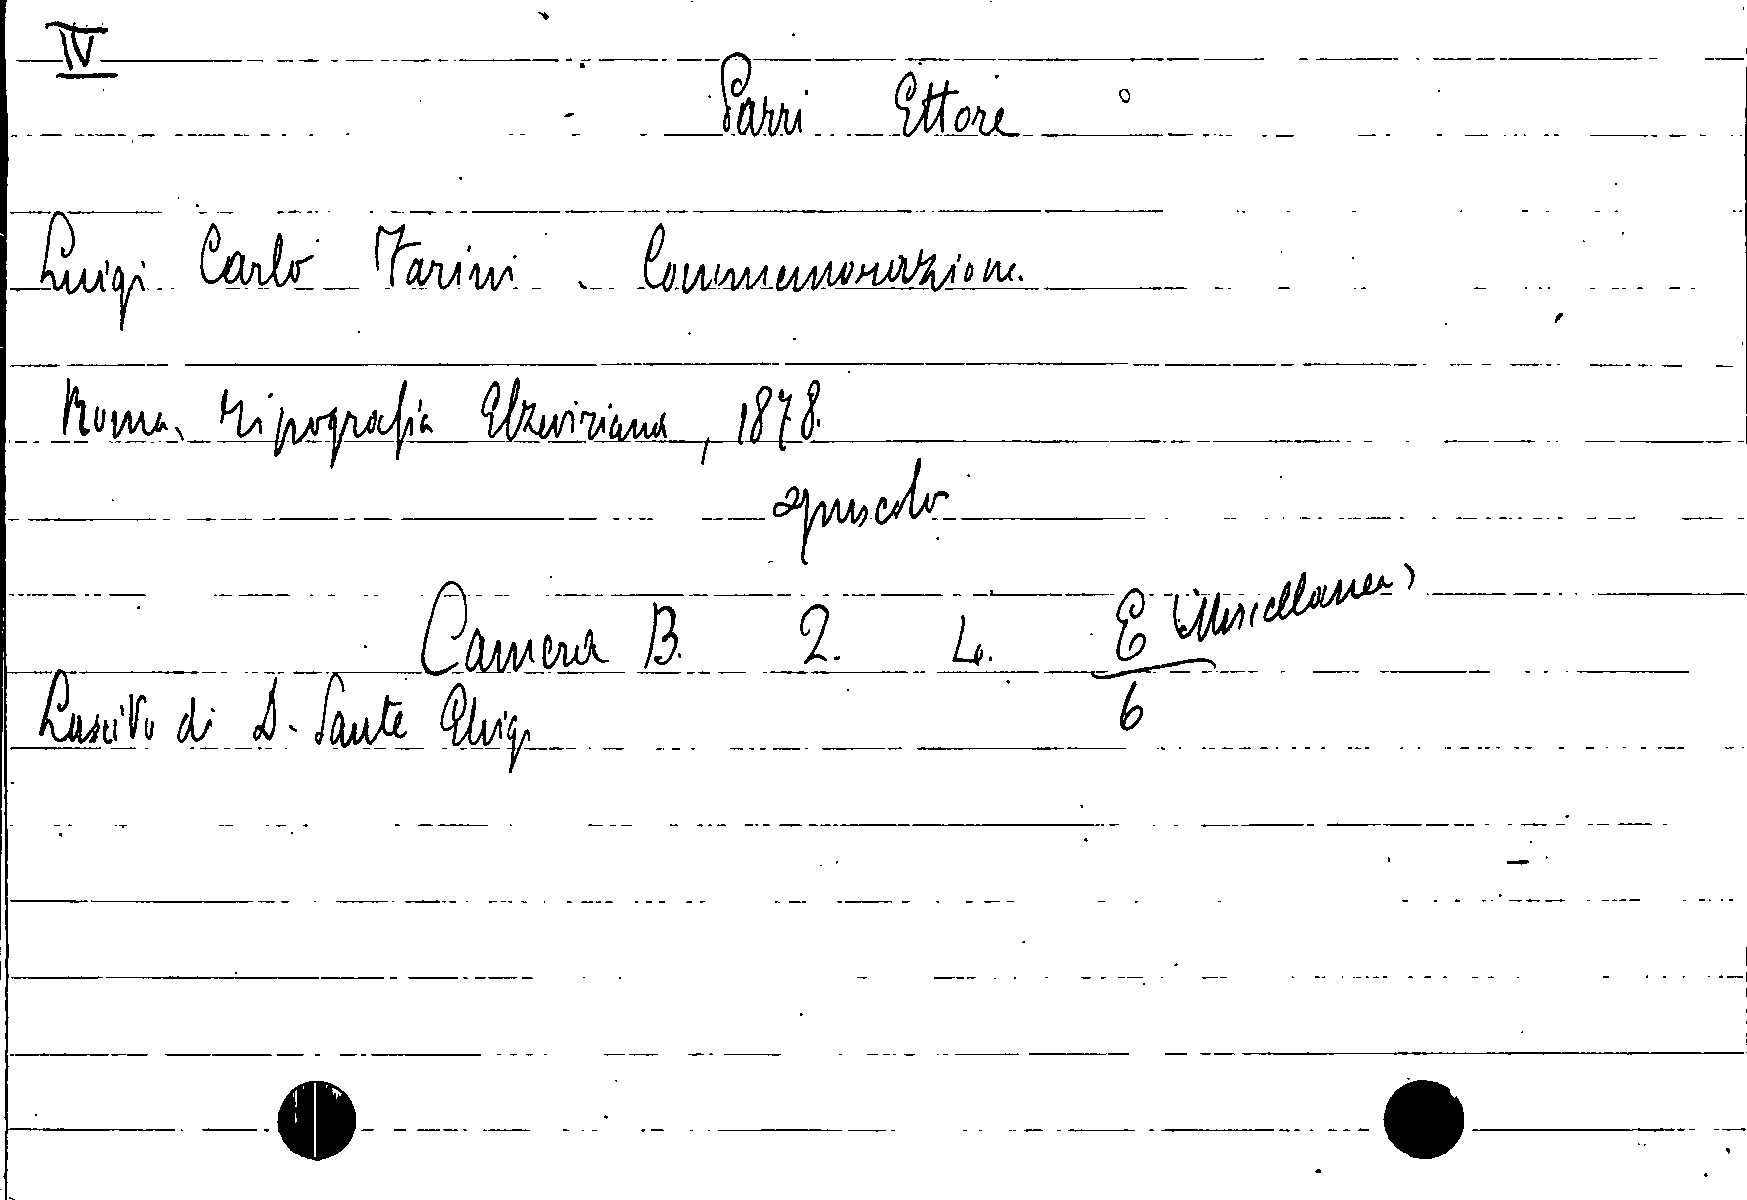 IV
Parri Ettore
Luigi Carlo Farini. Commemorazione.
Roma, Tipografia Elzeviriana, 1878.
opuscolo
Camera B. 2. 4. E (Miscellanea)
6
Lascito di D. Sante